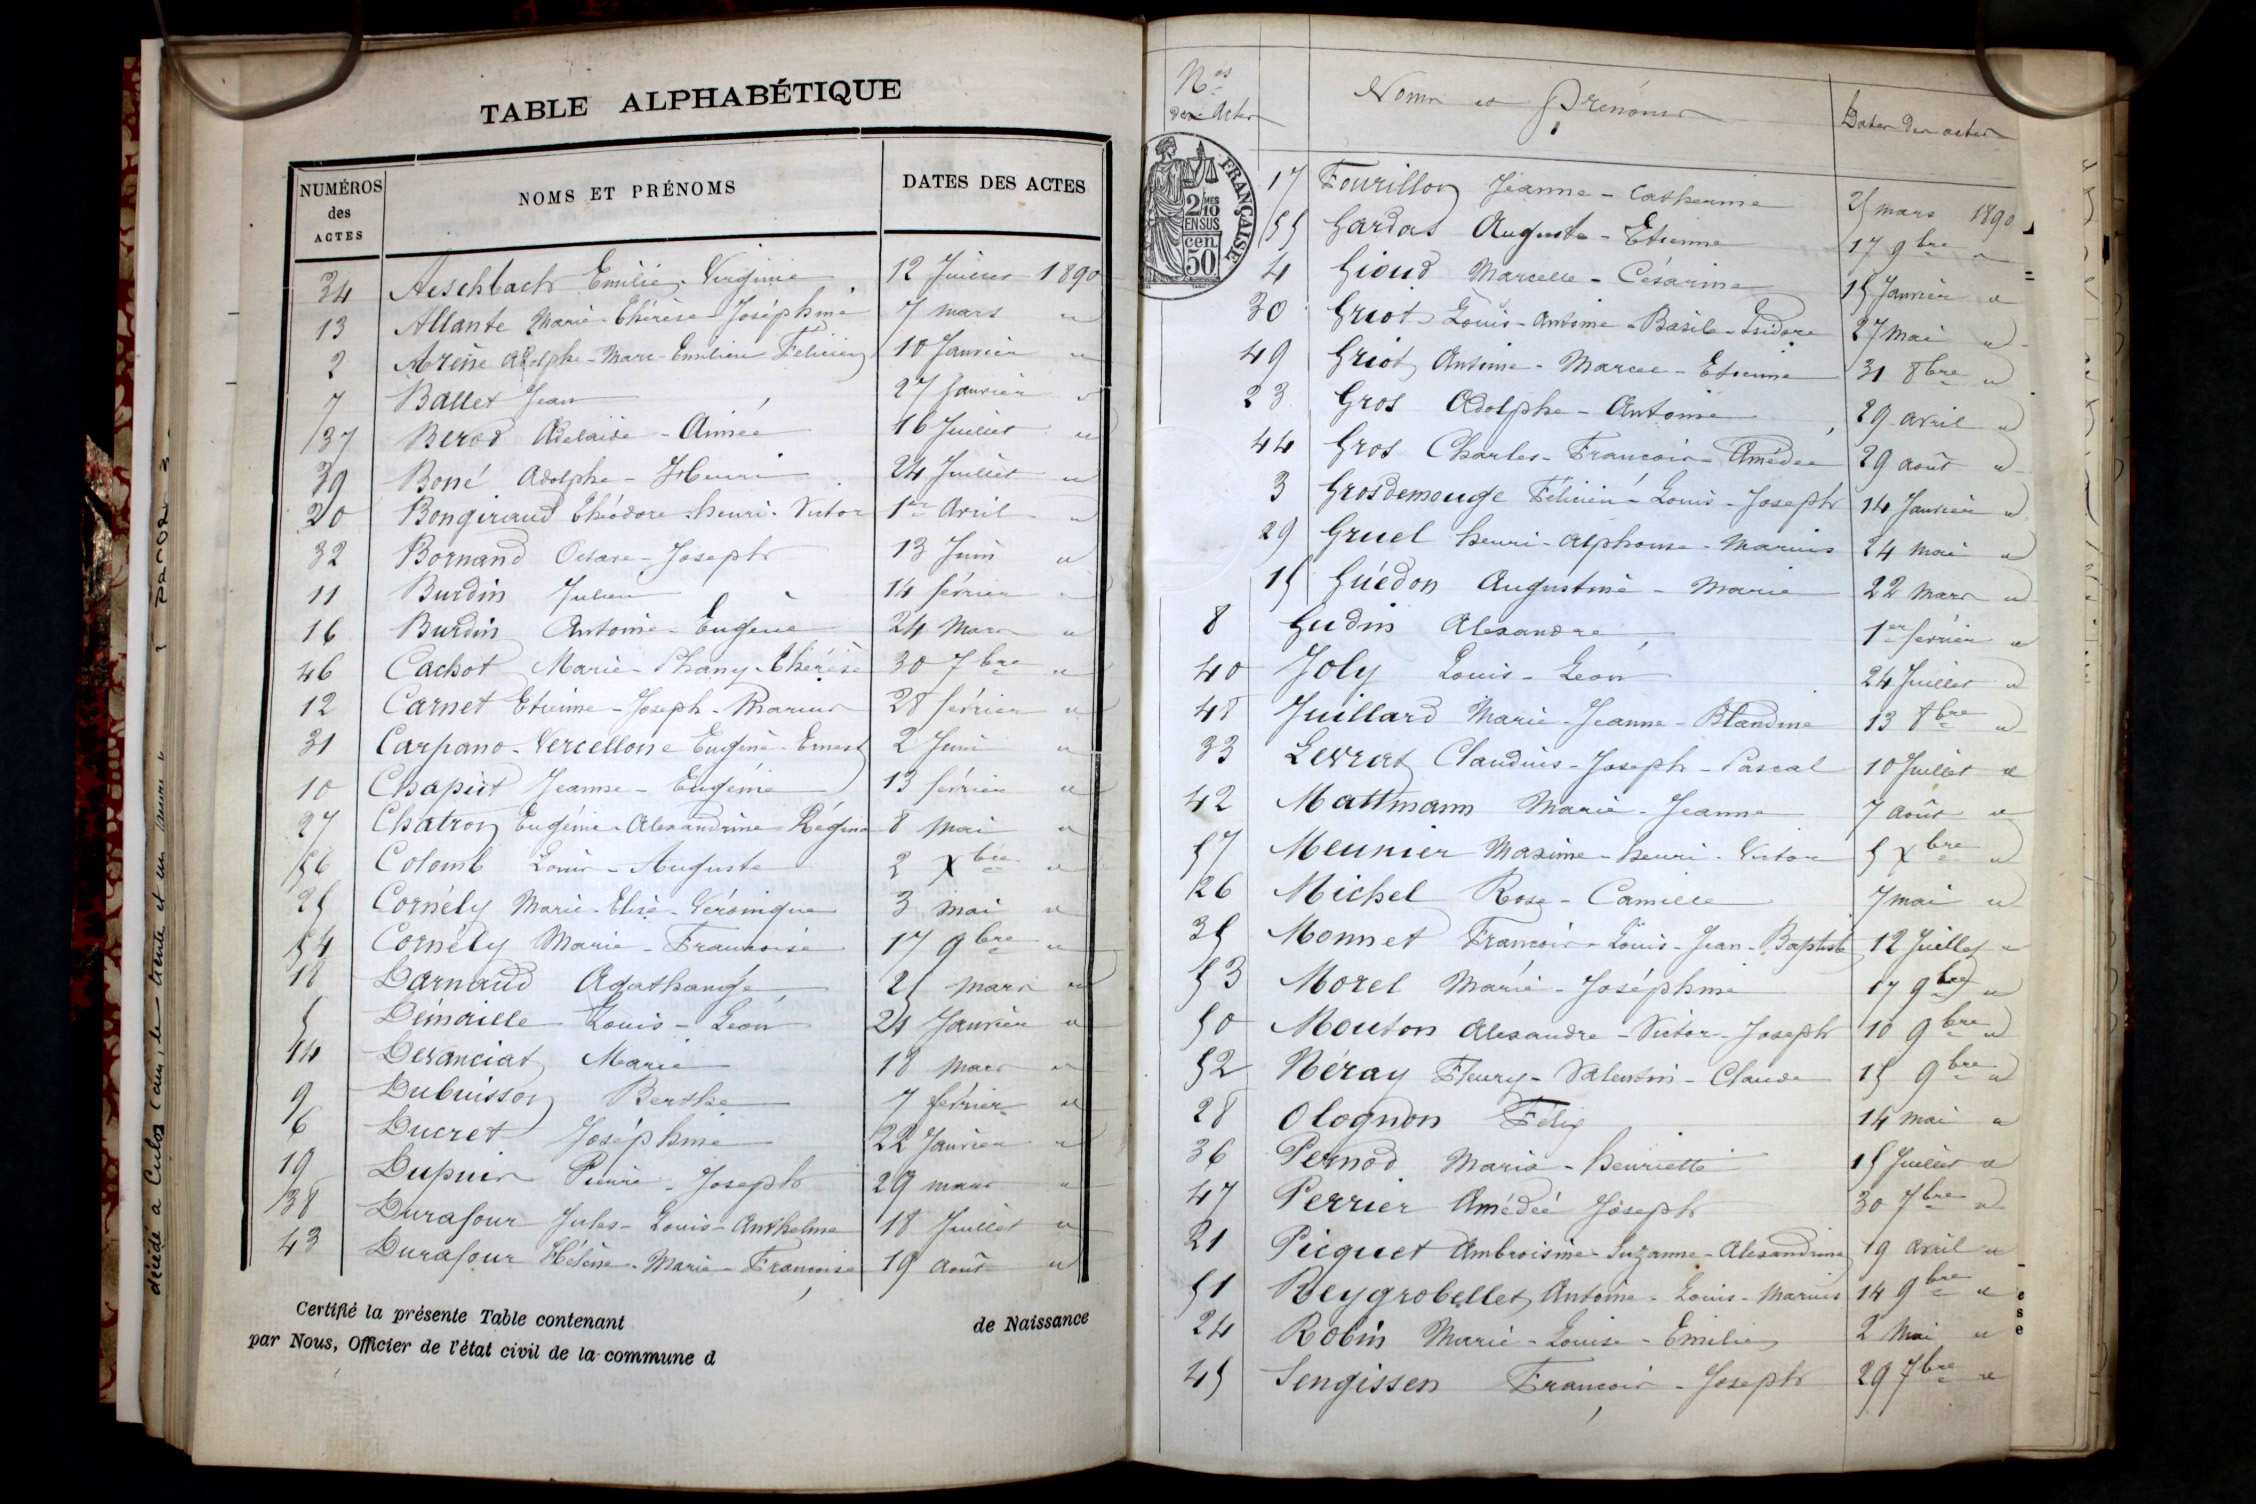 TABLE ALPHABÉTIQUE
NUMÉROS des ACTES NOMS ET PRÉNOMS DATES DES ACTES
34 Aeschbach Emilie-Virginie 12 Juillet 1890
13 Allante Marie-Thérèse-Joséphine 7 mars "
2 Arène Adolphe-Marc-Emilien Félicien 10 Janvier "
7 Ballet Jean 27 Janvier "
37 Berod Adelaïde-Aimée 16 Juillet "
39 Boné Adolphe-Henri 24 Juillet "
20 Bongiraud Théodore-henri-Victor 1er Avril "
32 Bornand Octave-Joseph 13 Juin "
11 Burdin Julien 14 février "
16 Burdin Antoine-Eugène 24 Mars "
46 Cachot Marie-Phany-Thérèse 30 7bre "
12 Carnet Etienne-Joseph-Marius 28 février "
31 Carpano-Vercellone Eugène-Ernest 2 Juin "
10 Chapist Jeanne-Eugénie 13 février "
27 Chatron Eugénie-Alexandrine-Régina 8 Mai "
56 Colomb Louis-Auguste 2 Xbre "
25 Cornély Marie-Elise-Véronique 3 mai "
54 Cornély Marie-Françoise 17 9bre "
18 Darnaud Agathange 25 mars "
5 Démaille Louis-Léon 21 Janvier "
14 Deranciat Marie 18 mars "
9 Dubuisson Berthe 7 février "
6 Ducret Joséphine 22 Janvier "
19 Dupuis Pierre-Joseph 29 mars "
38 Durafour Jules-Louis-Anthelme 18 Juillet "
43 Durafour Hélène-Marie-Françoise 19 août "
Certifié la présente Table contenant de Naissance
par Nous, Officier de l'état civil de la commune d
décédé à Culoz (Ain) le trente et un
Nos des Actes Noms et Prénoms Dates des actes
FRANÇAISE
2/10 MES
EN SUS
50 cen
17 Fourillon Jeanne-Catherine 25 mars 1890
55 Gardas Auguste-Etienne 17 9bre "
4 Gioud Marcelle-Césarine 15 Janvier "
30 Griot Louis-Antoine-Basile-Isidore 27 Mai "
49 Griot Antoine-Marcel-Etienne 31 8bre "
23 Gros Adolphe-Antoine 29 avril "
44 Gros Charles-François-Amédée 29 août "
3 Grosdemouge Félicien-Louis-Joseph 14 Janvier "
29 Gruel henri-Alphonse-Marius 24 mai "
15 Guédon Augustine-Marie 22 Mars "
8 Gudin Alexandre 1er février "
40 Joly Louis-Léon 24 Juillet "
48 Juillard Marie-Jeanne-Blandine 13 8bre "
33 Levrat Claudius-Joseph-Pascal 10 Juillet "
42 Mattmann Marie-Jeanne 7 août "
57 Meunier Maxime-henri-Victor 5 Xbre "
26 Michel Rose-Camille 7 mai "
35 Monnet François-Louis-Jean-Baptiste 12 Juillet "
53 Morel Marie-Joséphine 17 9bre "
50 Mouton Alexandre-Victor-Joseph 10 9bre "
52 Néray Fleury-Valentin-Claude 15 9bre "
28 Olognon Félix 14 mai "
36 Pernod Maria-henriette 15 Juillet "
47 Perrier Amédée Joseph 30 7bre "
21 Picquet Ambroisine-Suzanne-Alexandrine 19 avril "
51 Reygrobellet Antoine-Louis-Marius 14 9bre "
24 Robin Marie-Louise-Emilie 2 Mai "
45 Sengissen François-Joseph 29 7bre "